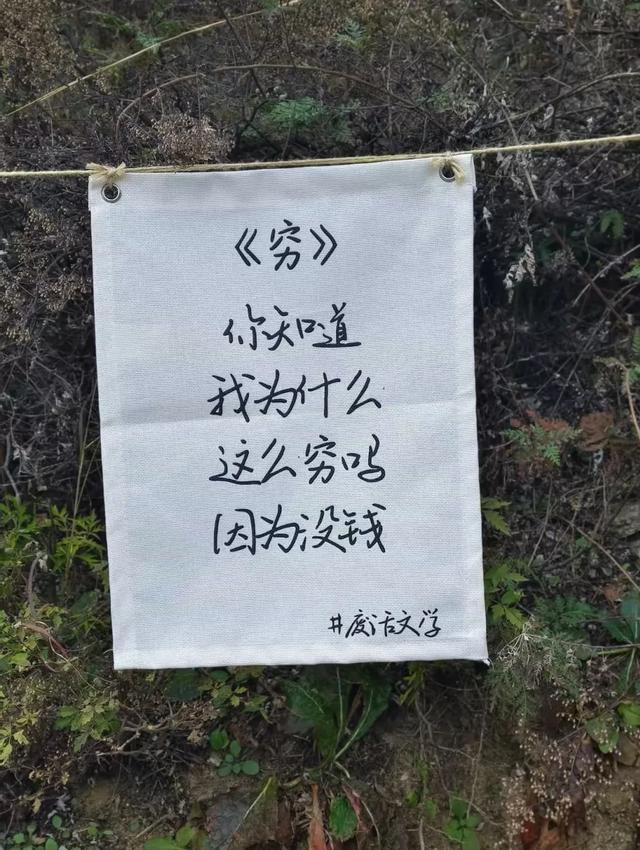 《穷》
你知道
我为什么
这么穷吗
因为没钱
#废话文学